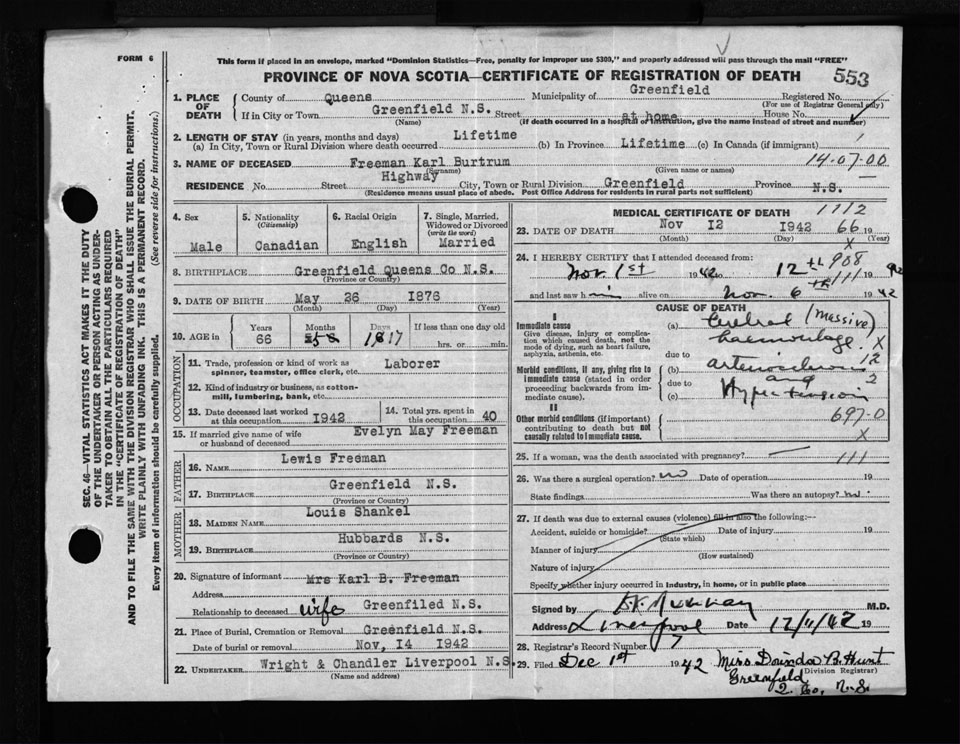 FORM 6
This form if placed in an envelope, marked "Dominion Statistics—Free, penalty for improper use $300," and properly addressed will pass through the mail "FREE"
PROVINCE OF NOVA SCOTIA—CERTIFICATE OF REGISTRATION OF DEATH
553
1. PLACE OF DEATH
County of Queens Municipality of Greenfield Registered No.
(For use of Registrar General only)
If in City or Town Greenfield N.S. Street at home House No.
(Name) (If death occurred in a hospital or institution, give the name instead of street and number)
2. LENGTH OF STAY (in years, months and days)
(a) In City, Town or Rural Division where death occurred Lifetime (b) In Province Lifetime (c) In Canada (if immigrant)
3. NAME OF DECEASED Freeman Karl Burtrum 14-07-00
(Surname) (Given name or names)
RESIDENCE No. Street Highway City, Town or Rural Division Greenfield Province N.S.
(Residence means usual place of abode. Post Office Address for residents in rural parts not sufficient)
4. Sex Male
5. Nationality (Citizenship) Canadian
6. Racial Origin English
7. Single, Married, Widowed or Divorced (write the word) Married
8. BIRTHPLACE Greenfield Queens Co N.S.
(Province or Country)
9. DATE OF BIRTH May 26 1876
(Month) (Day) (Year)
10. AGE in Years 66 Months Days 17 If less than one day old hrs. or min.
OCCUPATION
11. Trade, profession or kind of work as spinner, teamster, office clerk, etc. Laborer
12. Kind of industry or business, as cotton-mill, lumbering, bank, etc.
13. Date deceased last worked at this occupation 1942
14. Total yrs. spent in this occupation 40
15. If married give name of wife or husband of deceased Evelyn May Freeman
FATHER
16. NAME Lewis Freeman
17. BIRTHPLACE Greenfield N.S.
(Province or Country)
MOTHER
18. MAIDEN NAME Louis Shankel
19. BIRTHPLACE Hubbards N.S.
(Province or Country)
20. Signature of informant Mrs Karl B. Freeman
Address
Relationship to deceased wife Greenfiled N.S.
21. Place of Burial, Cremation or Removal Greenfield N.S.
Date of burial or removal Nov, 14 1942
22. UNDERTAKER Wright & Chandler Liverpool N.S.
(Name and address)
MEDICAL CERTIFICATE OF DEATH 1712
23. DATE OF DEATH Nov 12 1942 66 19
(Month) (Day) (Year)
X
24. I HEREBY CERTIFY that I attended deceased from:
908
Nov. 1st 1942 to 12th 1942
111
and last saw him alive on Nov. 6th 1942
CAUSE OF DEATH
I
Immediate cause
Give disease, injury or complication which caused death, not the mode of dying, such as heart failure, asphyxia, asthenia, etc.
(a) Cerebral (massive) haemorrhage X
due to
Morbid conditions, if any, giving rise to immediate cause (stated in order proceeding backwards from immediate cause).
(b) arteriosclerosis 12
due to and 2
(c) Hypertension
II
Other morbid conditions (if important) contributing to death but not causally related to immediate cause.
697-0
X
25. If a woman, was the death associated with pregnancy? 111
26. Was there a surgical operation? no Date of operation 19
State findings Was there an autopsy? no.
27. If death was due to external causes (violence) fill in also the following:—
Accident, suicide or homicide? Date of injury 19
(State which)
Manner of injury
(How sustained)
Nature of injury
Specify whether injury occurred in industry, in home, or in public place
Signed by M.D.
Address Liverpool Date 12/11/42 19
28. Registrar's Record Number 7
29. Filed Dec 1st 1942 Miss Dorinda B. Hunt
(Division Registrar)
Greenfield
Q. Co. N.S.
SEC. 46—VITAL STATISTICS ACT MAKES IT THE DUTY OF THE UNDERTAKER OR PERSON ACTING AS UNDERTAKER TO OBTAIN ALL THE PARTICULARS REQUIRED IN THE "CERTIFICATE OF REGISTRATION OF DEATH"
AND TO FILE THE SAME WITH THE DIVISION REGISTRAR WHO SHALL ISSUE THE BURIAL PERMIT.
WRITE PLAINLY WITH UNFADING INK. THIS IS A PERMANENT RECORD.
Every item of information should be carefully supplied. (See reverse side for instructions.)